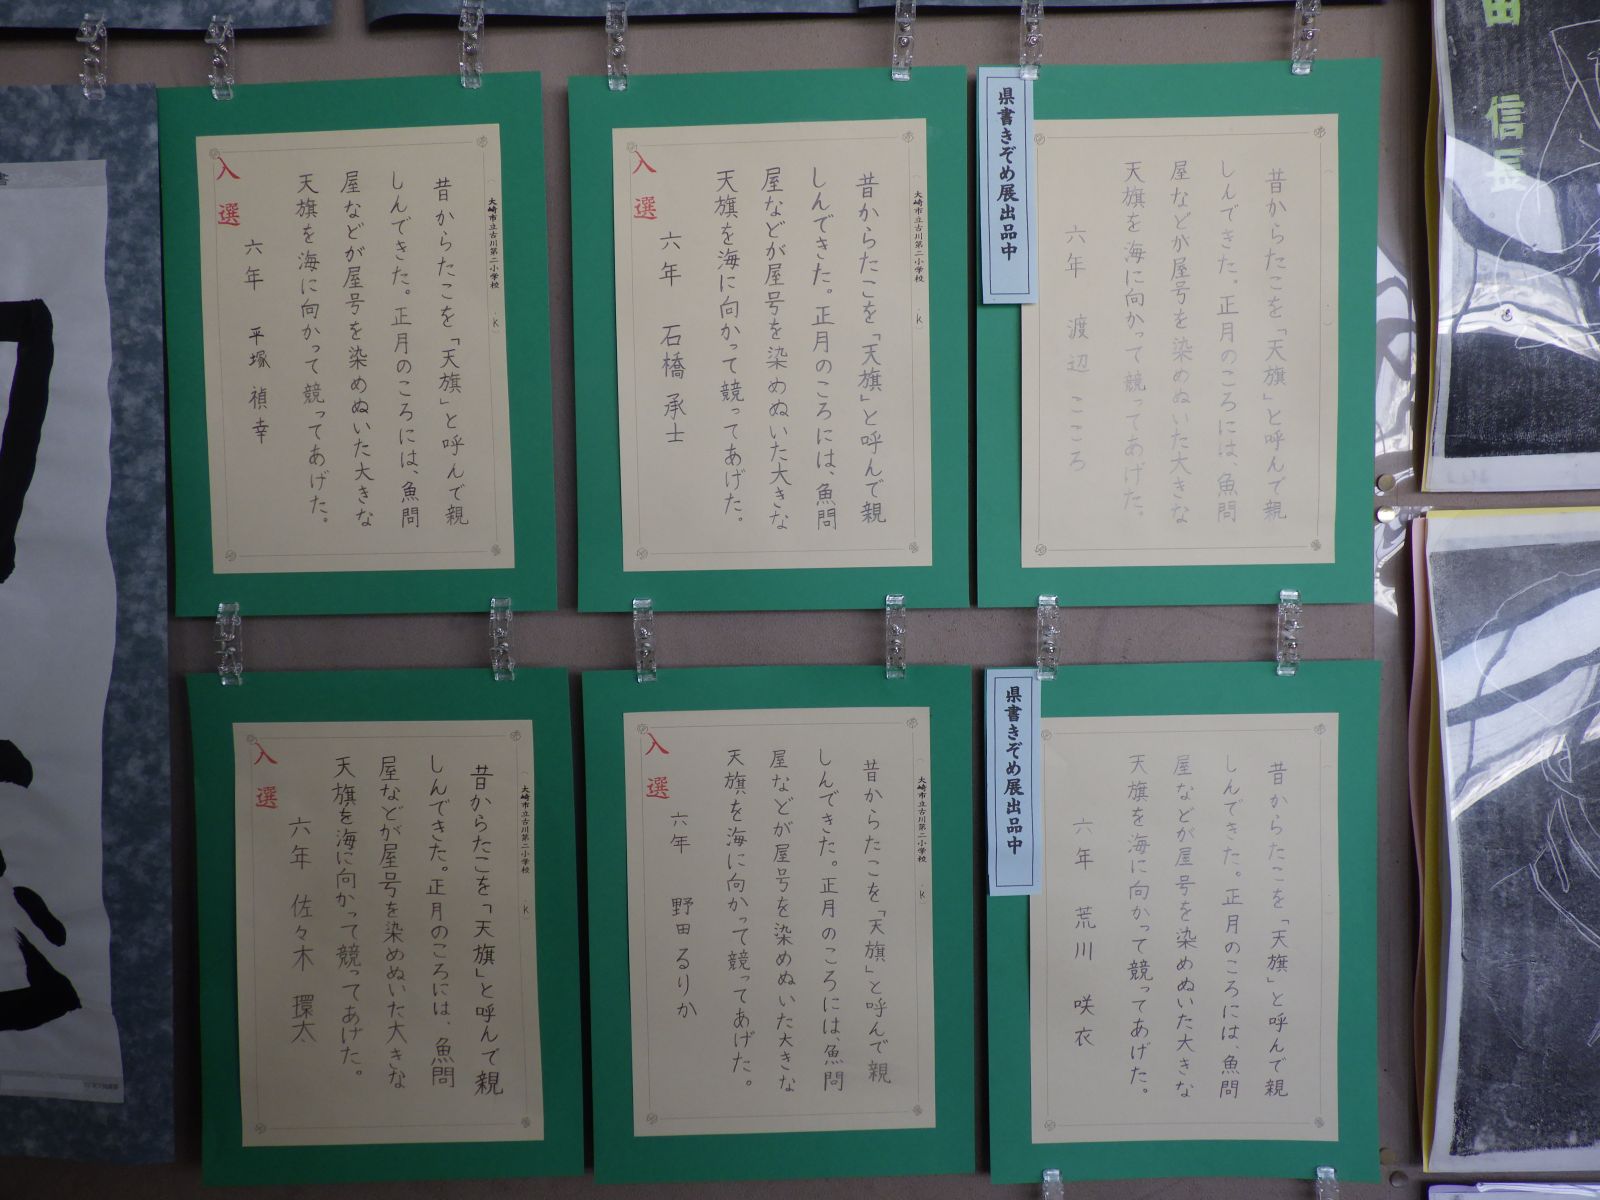 県書きぞめ展出品中
昔からたこを「天旗」と呼んで親
しんできた。正月のころには、魚問
屋などが屋号を染めぬいた大きな
天旗を海に向かって競ってあげた。
六年 渡辺 こころ
大崎市立古川第二小学校
昔からたこを「天旗」と呼んで親
しんできた。正月のころには、魚問
屋などが屋号を染めぬいた大きな
天旗を海に向かって競ってあげた。
六年 石橋 承士
入選
大崎市立古川第二小学校
昔からたこを「天旗」と呼んで親
しんできた。正月のころには、魚問
屋などが屋号を染めぬいた大きな
天旗を海に向かって競ってあげた。
六年 平塚 禎幸
入選
県書きぞめ展出品中
昔からたこを「天旗」と呼んで親
しんできた。正月のころには、魚問
屋などが屋号を染めぬいた大きな
天旗を海に向かって競ってあげた。
六年 荒川 咲衣
大崎市立古川第二小学校
昔からたこを「天旗」と呼んで親
しんできた。正月のころには、魚問
屋などが屋号を染めぬいた大きな
天旗を海に向かって競ってあげた。
六年 野田 るりか
入選
大崎市立古川第二小学校
昔からたこを「天旗」と呼んで親
しんできた。正月のころには、魚問
屋などが屋号を染めぬいた大きな
天旗を海に向かって競ってあげた。
六年 佐々木 環太
入選
田 信長